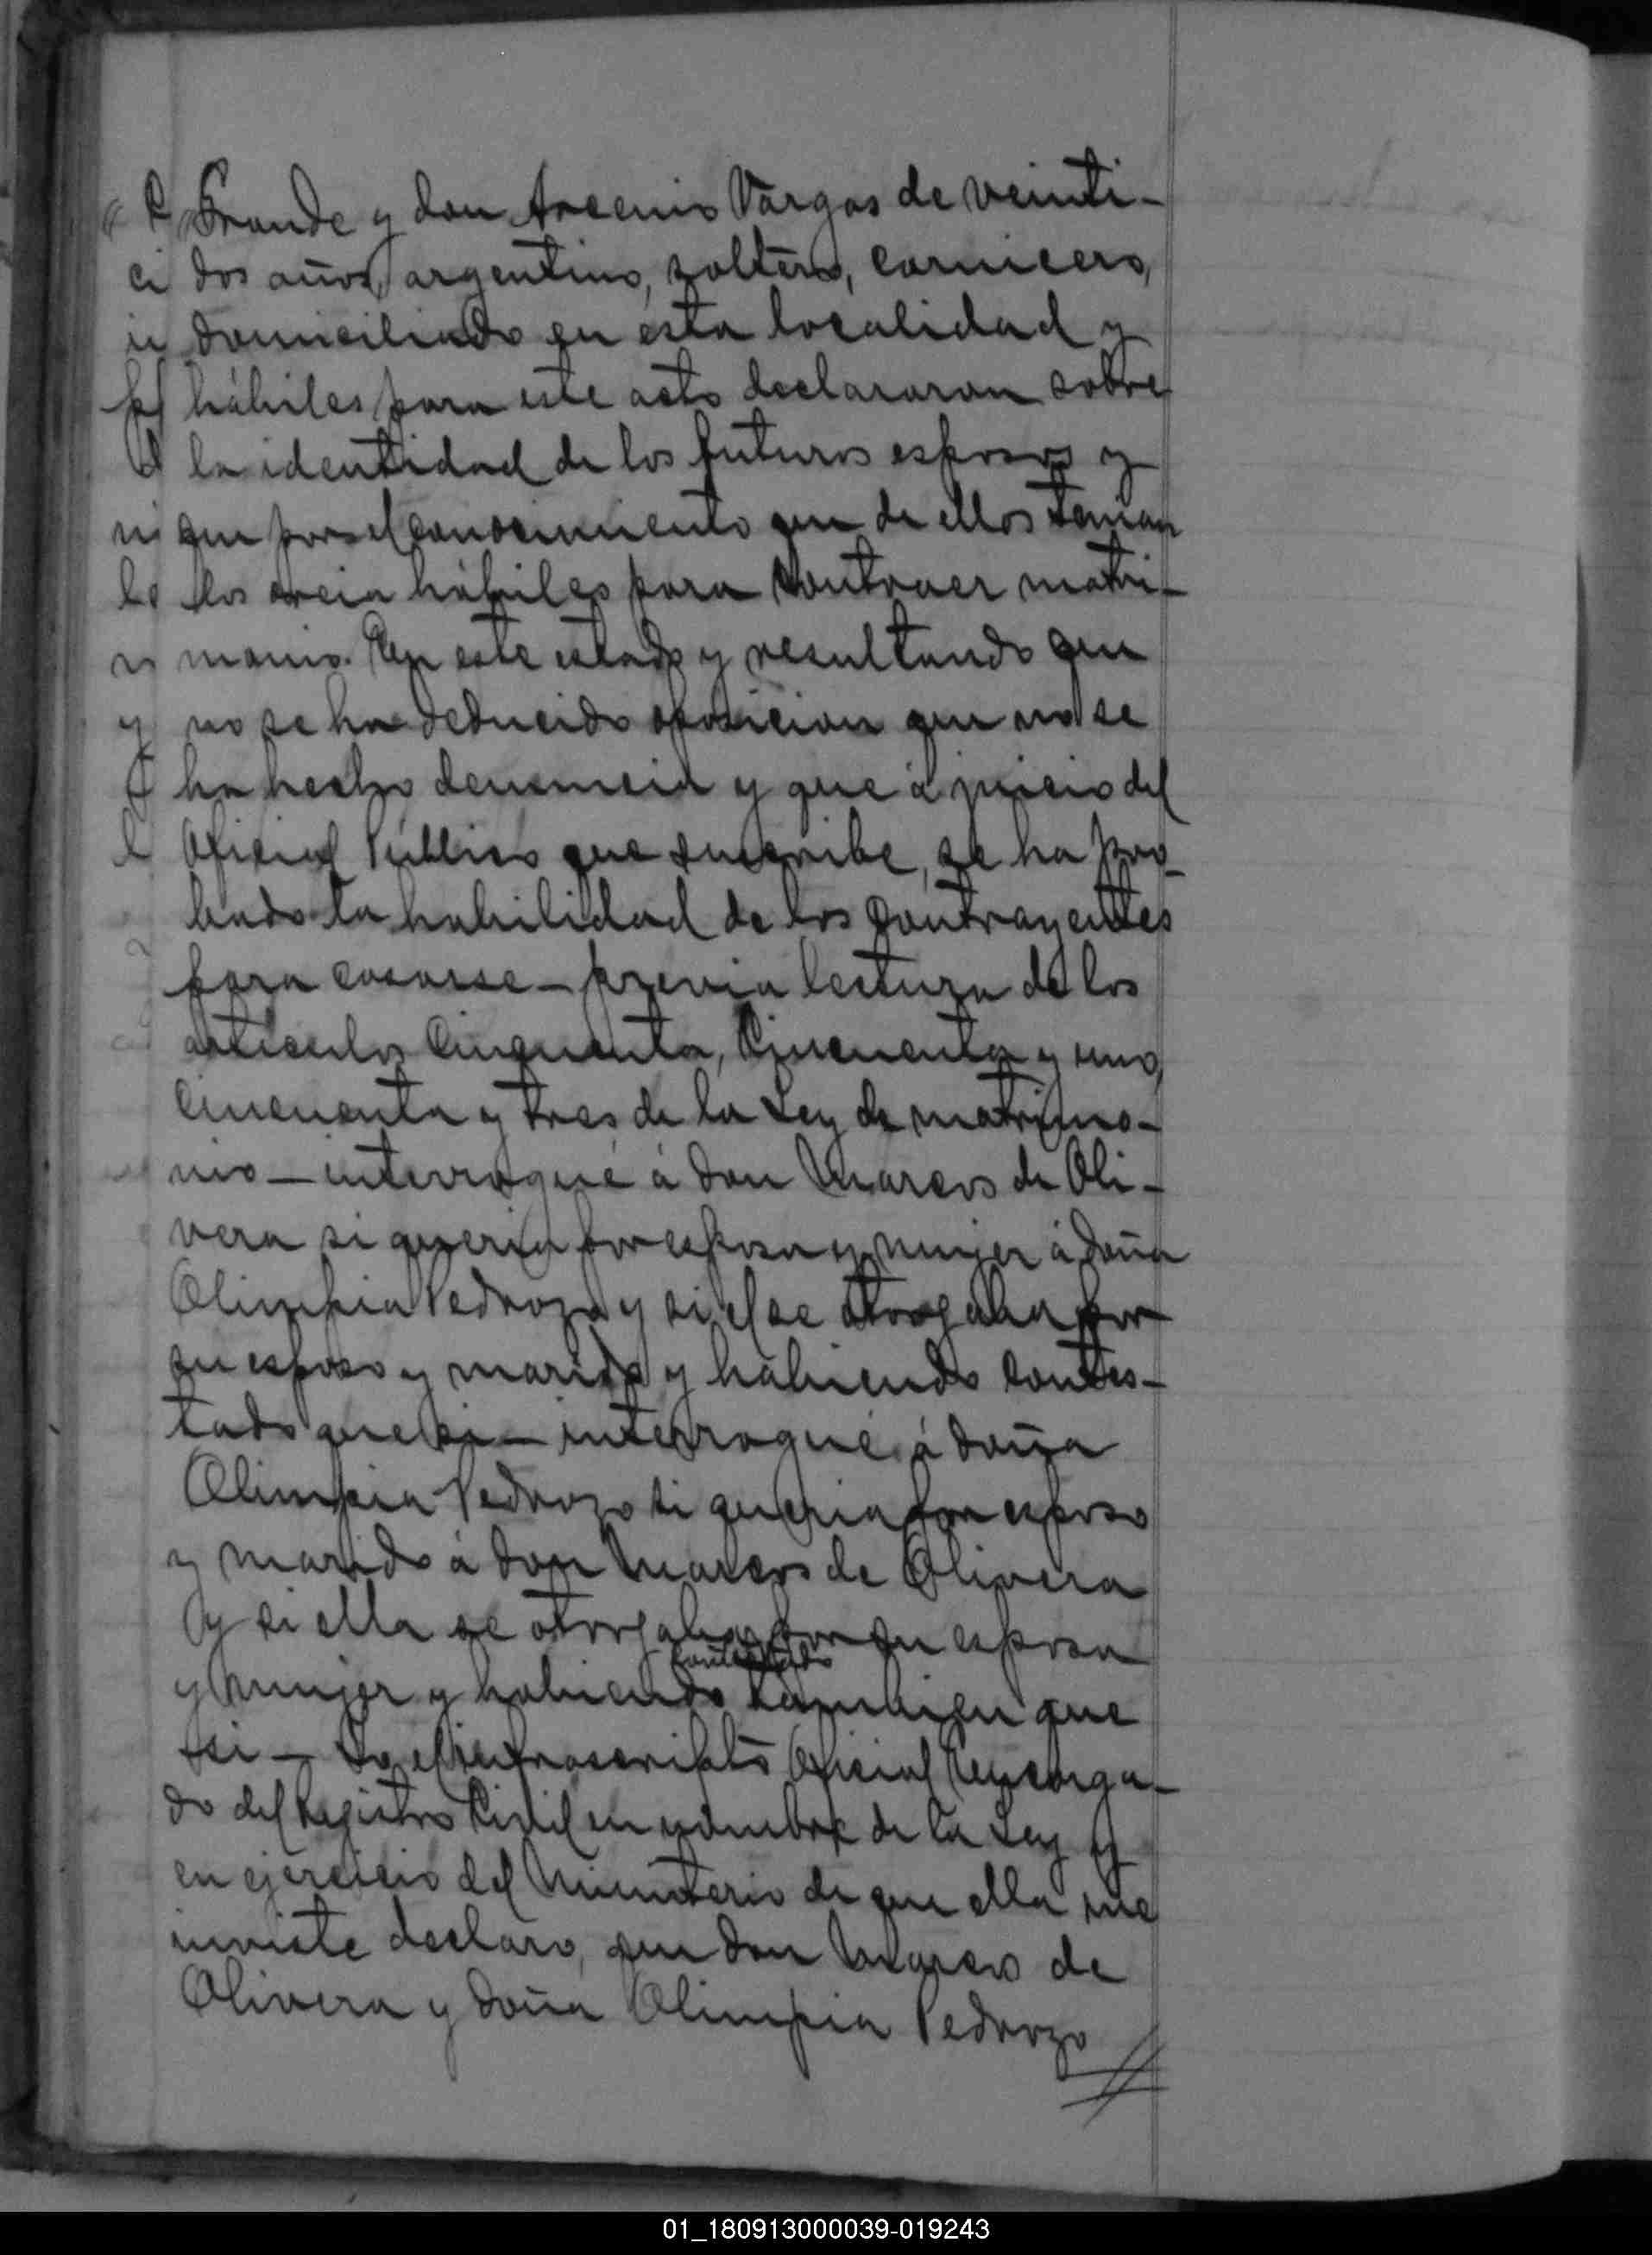 Grande y don Arcenio Vargas de veinti-
dos años, argentino, soltero, carnicero,
domiciliado en ésta localidad y
hábiles para este acto declararon sobre
la identidad de los futuros esposos y
que por el conocimiento que de ellos tenian
los creia hábiles para contraer matri-
monio. En este estado y resultando que
no se ha deducido oposicion que no se
ha hecho denuncia y que á juicio del
Oficial Público que suscribe, se ha pro-
bado la habilidad de los contrayentes
para casarse - previa lectura de los
articulos Cincuenta, Cincuenta y uno,
Cincuenta y tres de la Ley de matrimo-
nio - interrogué á don Marcos de Oli-
vera si queria por esposa y mujer á doña
Olimpia Pedrozo y si el se otorgaba por
su esposo y marido y habiendo contes-
tado que si - interrogué á doña
Olimpia Pedrozo si queria por esposo
y marido á don Marcos de Olivera
y si ella se otorgaba por su esposa
contestado
y mujer y habiendo tambien que
si - Yo el infrascripto Oficial Encarga-
do del Registro Civil en nombre de la Ley y
en ejercicio del Ministerio de que ella me
inviste declaro, que don Marcos de
Olivera y doña Olimpia Pedrozo
//
01_180913000039-019243